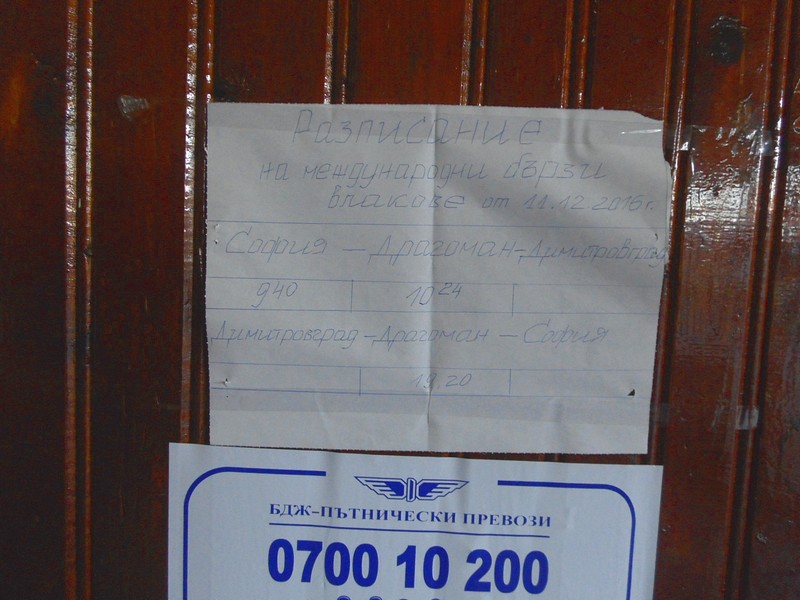 Разписание
на международни бързи
влакове от 11.12.2016г.
София – Драгоман – Димитровград
9 40 10 24
Димитровград – Драгоман – София
19.20
БДЖ-ПЪТНИЧЕСКИ ПРЕВОЗИ
0700 10 200